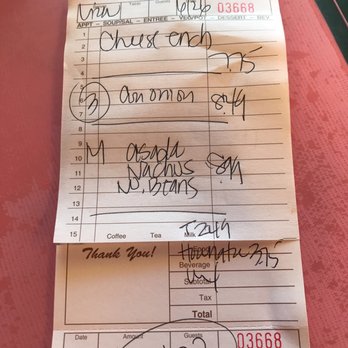 Table Guests 03668
APPT - SOUP/SAL - ENTREE - VEG/POT - DESSERT - BEV
1 Cheese ench
2
3 7.75
4
5
6 3 an onion 8.49
7
8
9
10 M asada 8.99
11 Nachos
12 No Beans
13
14
15 Coffee Tea Milk T 2.49
Thank You!
Beverage 3.75
Subtotal
Tax
Total
Date Amount Guests 03668